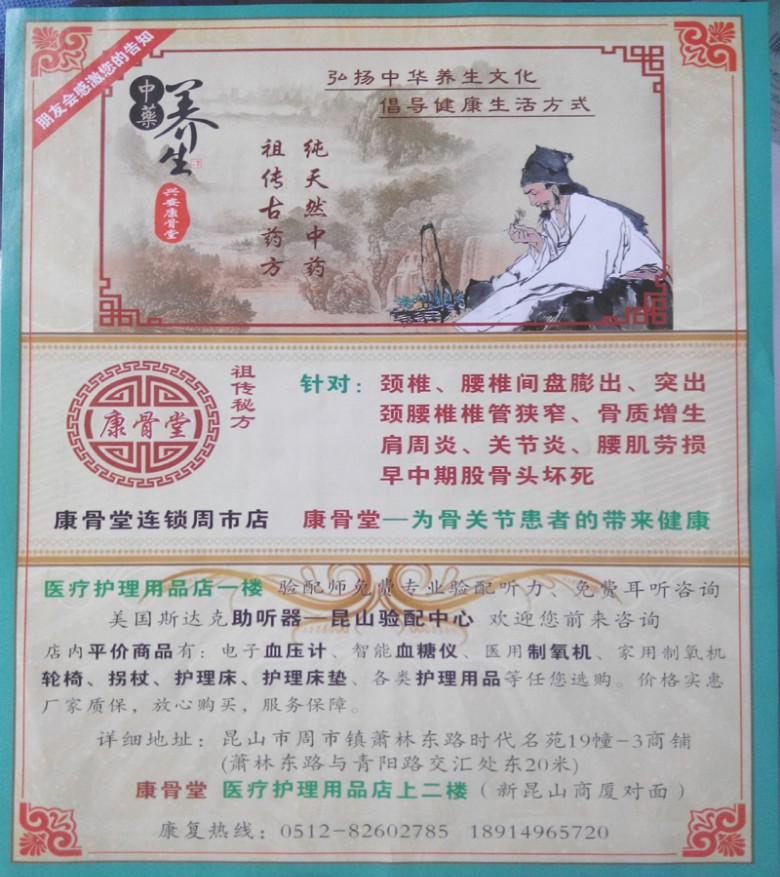 朋友会感激您的告知
中藥
养生
兴安康骨堂
弘扬中华养生文化
倡导健康生活方式
纯天然中药
祖传古药方
康骨堂
祖传秘方
针对：颈椎、腰椎间盘膨出、突出
颈腰椎椎管狭窄、骨质增生
肩周炎、关节炎、腰肌劳损
早中期股骨头坏死
康骨堂连锁周市店 康骨堂—为骨关节患者的带来健康
医疗护理用品店一楼 验配师免费专业验配听力、免费耳听咨询
美国斯达克助听器—昆山验配中心 欢迎您前来咨询
店内平价商品有：电子血压计、智能血糖仪、医用制氧机、家用制氧机
轮椅、拐杖、护理床、护理床垫、各类护理用品等任您选购。价格实惠
厂家质保，放心购买，服务保障。
详细地址：昆山市周市镇萧林东路时代名苑19幢-3商铺
(萧林东路与青阳路交汇处东20米)
康骨堂 医疗护理用品店上二楼（新昆山商厦对面）
康复热线：0512-82602785 18914965720